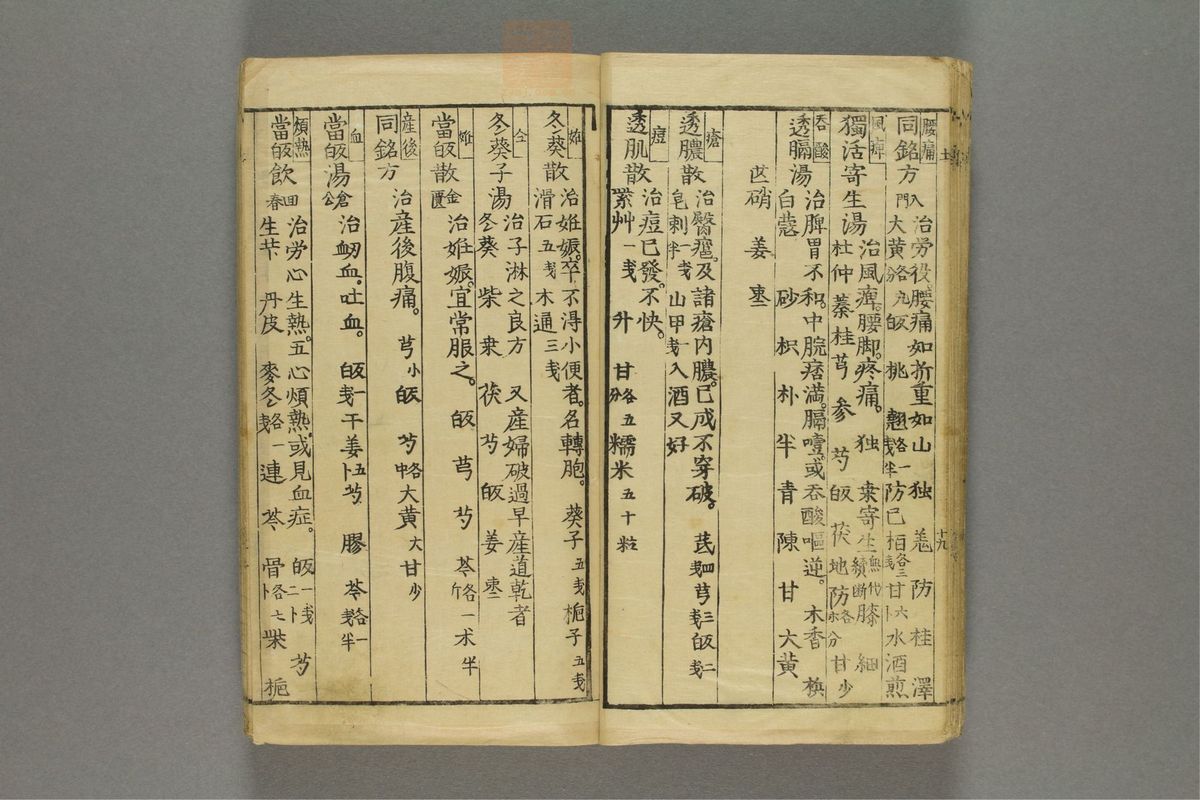 腰痛
同銘方 入門 治労役腰痛如折重如山 独 羗 防 桂 澤
大黄各九分 皈 桃 翹各一戋半 防已 栢各三戋 甘六卜 水酒煎
風痺
獨活寄生湯 治風痺。腰脚。疼痛。 独 桒寄生無代續断 膝 細
杜仲 蓁 桂 芎 参 芍 皈 茯 地 防各永分 甘少
呑酸
透膈湯 治脾胃不和。中脘痞満。膈噎。或呑酸嘔逆。 木香 梹
白蔻 砂 枳 朴 半 青 陳 甘 大黄
芒硝 姜 枣
瘡
透膿散 治醫瘟。及諸瘡内膿。已成不穿破。 芪四戋 芎三戋 皈二戋
皂刺一戋半 山甲一戋 入酒又好
痘
透肌散 治痘已發。不快。
紫艸一戋 升 甘各五分 糯米五十粒
妊
冬葵散 治妊娠。卒不淂小便者。名轉胞。 葵子五戋 梔子五戋
滑石五戋 木通三戋
仝
冬葵子湯 治子淋之良方 又産婦破過早産道乾者
冬葵 柴 桒 茯 芍 皈 姜 枣二
妊
當皈散 金匱 治妊娠。宜常服之。 皈 芎 芍 芩各一斤 术半
産後
同銘方 治産後腹痛。 芎小 皈 芍各中 大黄大 甘少
血
當皈湯 倉公 治衂血。吐血。 皈一戋 干姜五卜 芍 膠 芩各一戋半
煩熱
當皈飲 回春 治労心生熱。五心煩熱。或見血症。 皈一戋二卜 芍
生芐 丹皮 麥冬各一戋 連 芩 骨各七卜 柴 梔